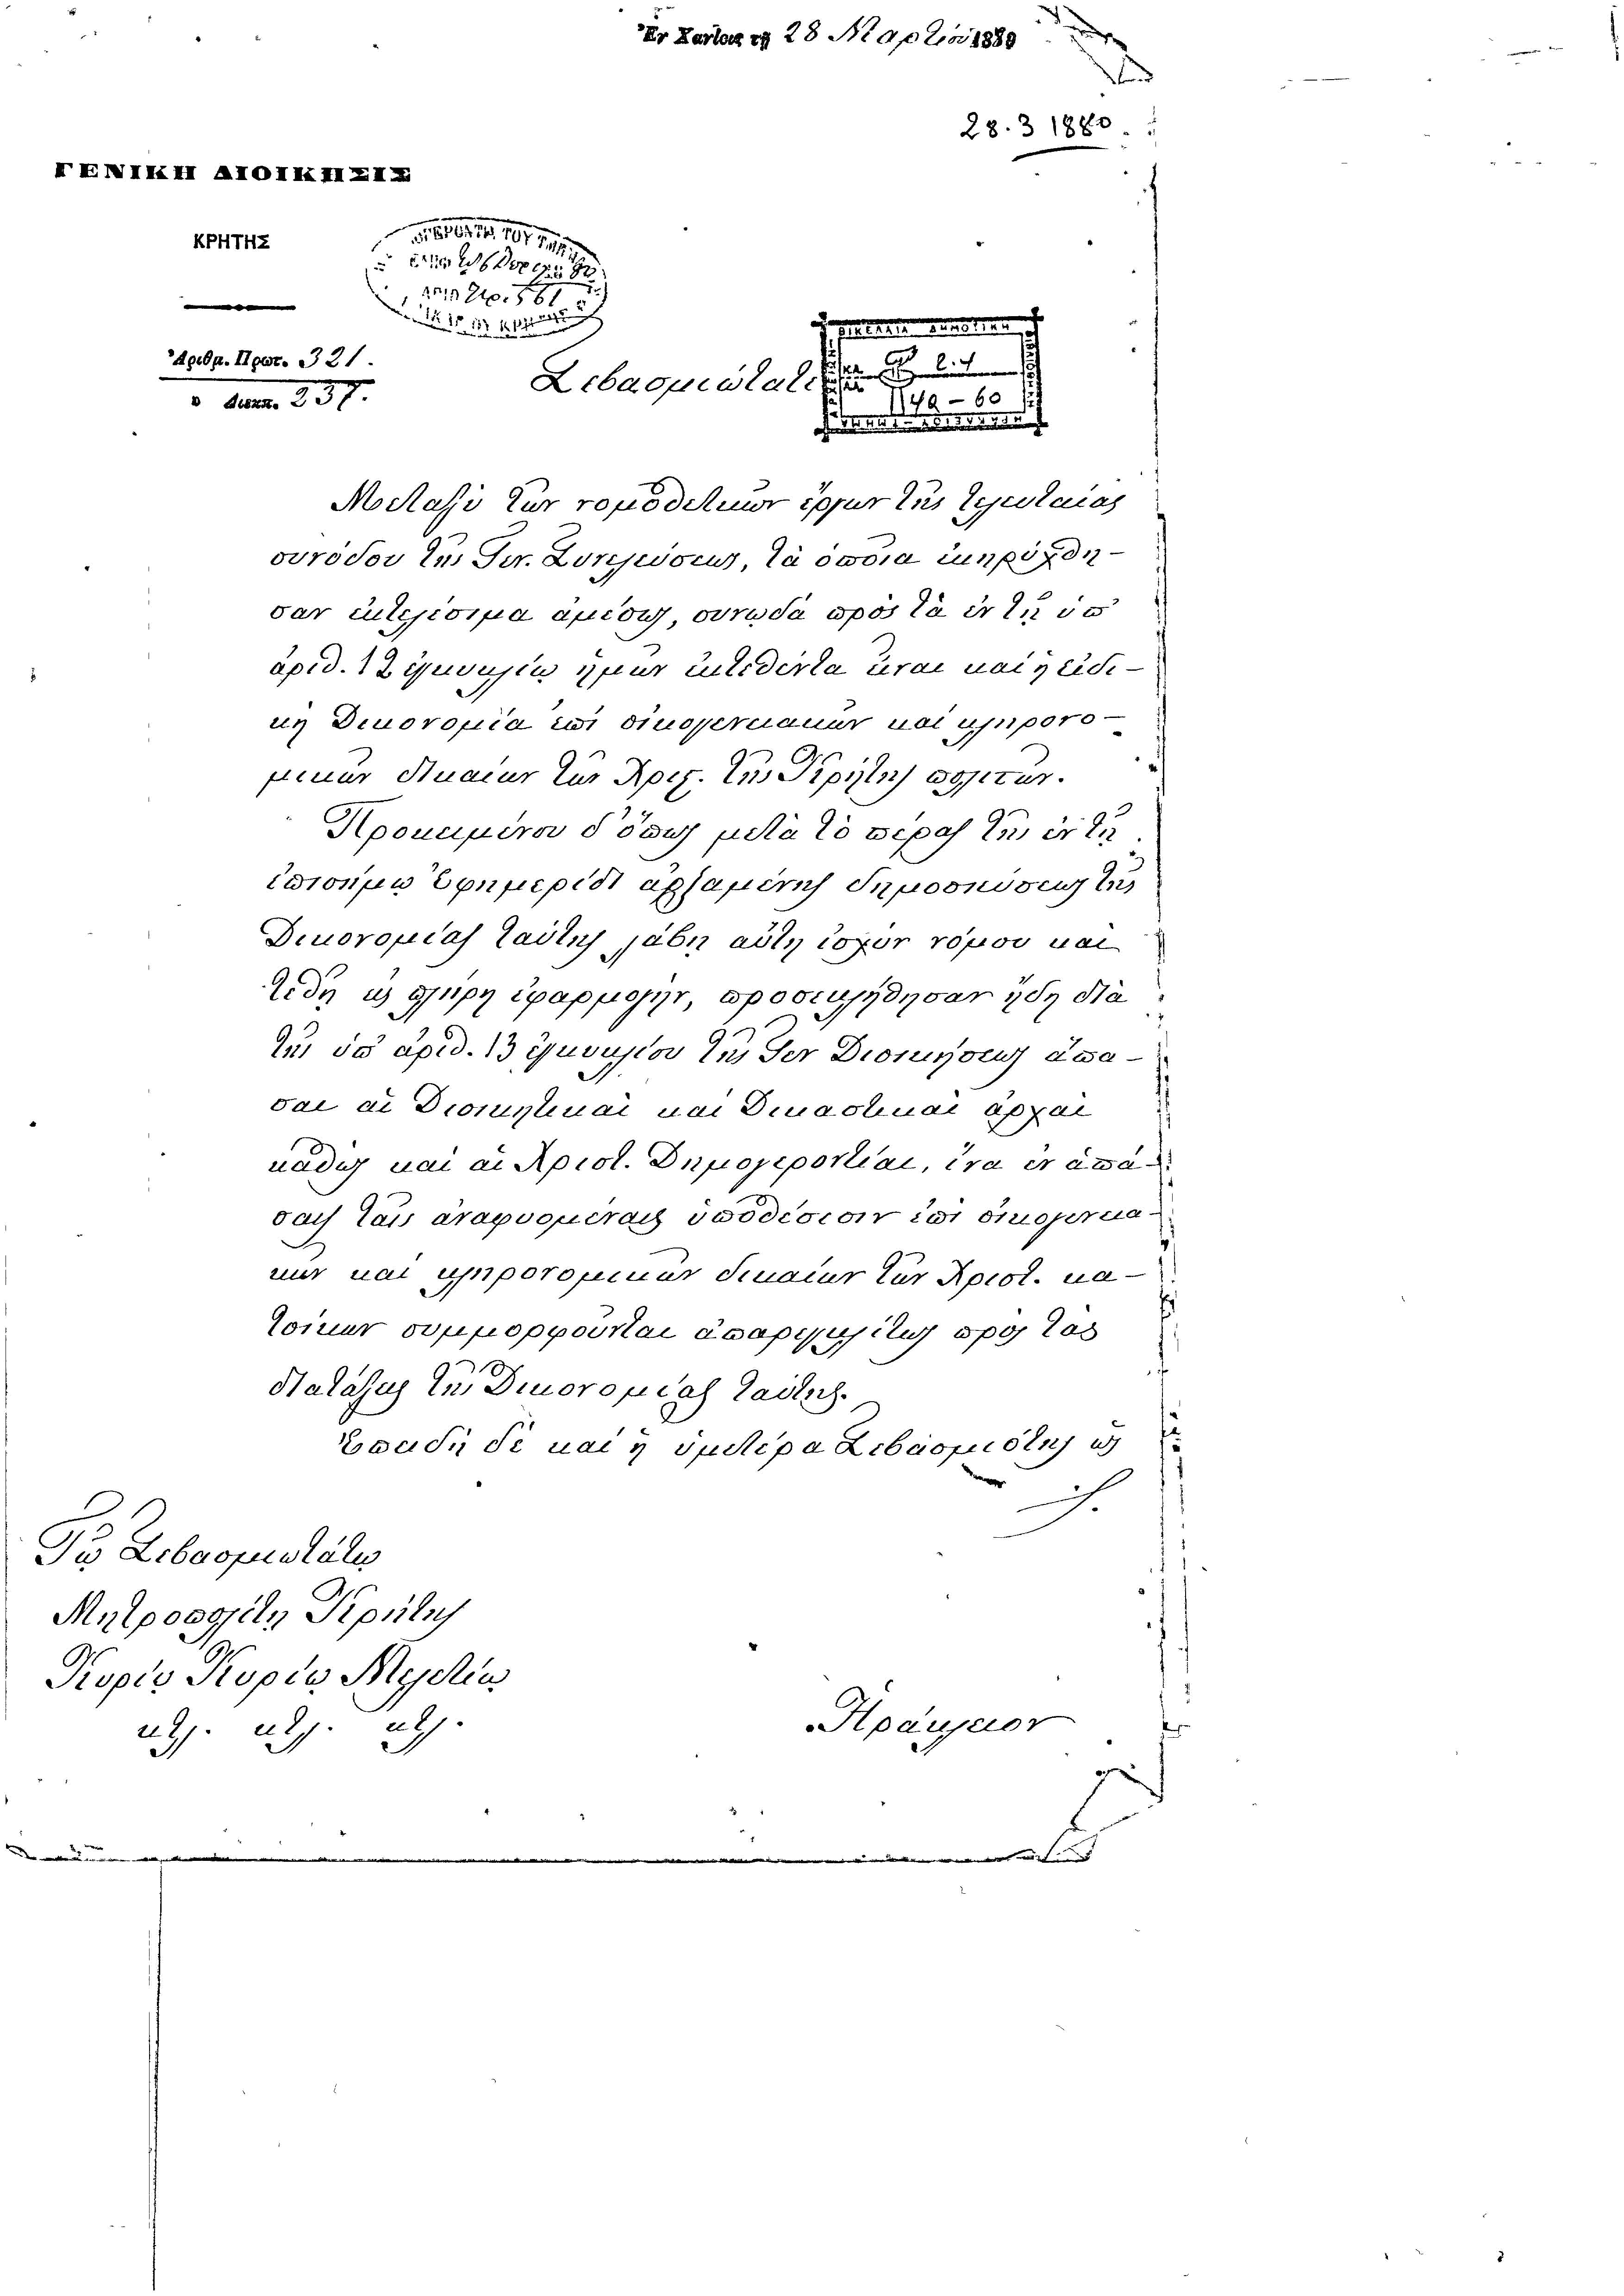 Ἐν Χανίοις τῇ 28 Μαρτίου 1880
28. 3 1880.
ΓΕΝΙΚΗ ΔΙΟΙΚΗΣΙΣ
ΚΡΗΤΗΣ
Ἀριθμ. Πρωτ. 321.
» Διεκπ. 237.
Σεβασμιώτατε
1149-60
Μεταξὺ τῶν νομοθετικῶν ἔργων τῆς τελευταίας
συνόδου τῆς Γεν. Συνελεύσεως, τὰ ὁποῖα ἐκηρύχθη-
σαν ἐκτελέσιμα ἀμέσως, συνῳδὰ πρὸς τὰ ἐν τῇ ὑπ'
ἀριθ. 12 ἐγκυκλίῳ ἡμῶν ἐκτεθέντα εἶναι καὶ ἡ εἰδι-
κὴ Δικονομία ἐπὶ οἰκογενειακῶν καὶ κληρονο-
μικῶν δικαίων τῶν Χριστ. τῆς Κρήτης πολιτῶν.
Προκειμένου δ' ὅπως μετὰ τὸ πέρας τῆς ἐν τῇ
ἐπισήμῳ Ἐφημερίδι ἀρξαμένης δημοσιεύσεως τῆς
Δικονομίας ταύτης λάβῃ αὕτη ἰσχὺν νόμου καὶ
τεθῇ εἰς πλήρη ἐφαρμογήν, προσεκλήθησαν ἤδη διὰ
τῆς ὑπ' ἀριθ. 13 ἐγκυκλίου τῆς Γεν Διοικήσεως ἅπα-
σαι αἱ Διοικητικαὶ καὶ Δικαστικαὶ ἀρχαὶ
καθὼς καὶ αἱ Χριστ. Δημογεροντίαι, ἵνα ἐν ἁπά-
σαις ταῖς ἀναφυομέναις ὑποθέσεσιν ἐπὶ οἰκογενεια-
κῶν καὶ κληρονομικῶν δικαίων τῶν Χριστ. κα-
τοίκων συμμορφοῦνται ἀπαρεγκλίτως πρὸς τὰς
διατάξεις τῆς Δικονομίας ταύτης.
Ἐπειδὴ δὲ καὶ ἡ ὑμετέρα Σεβασμιότης ὡς
Τῷ Σεβασμιωτάτῳ
Μητροπολίτῃ Κρήτης
Κυρίῳ Κυρίῳ Μελετίῳ
κτλ. κτλ. κτλ.
Ἡράκλειον